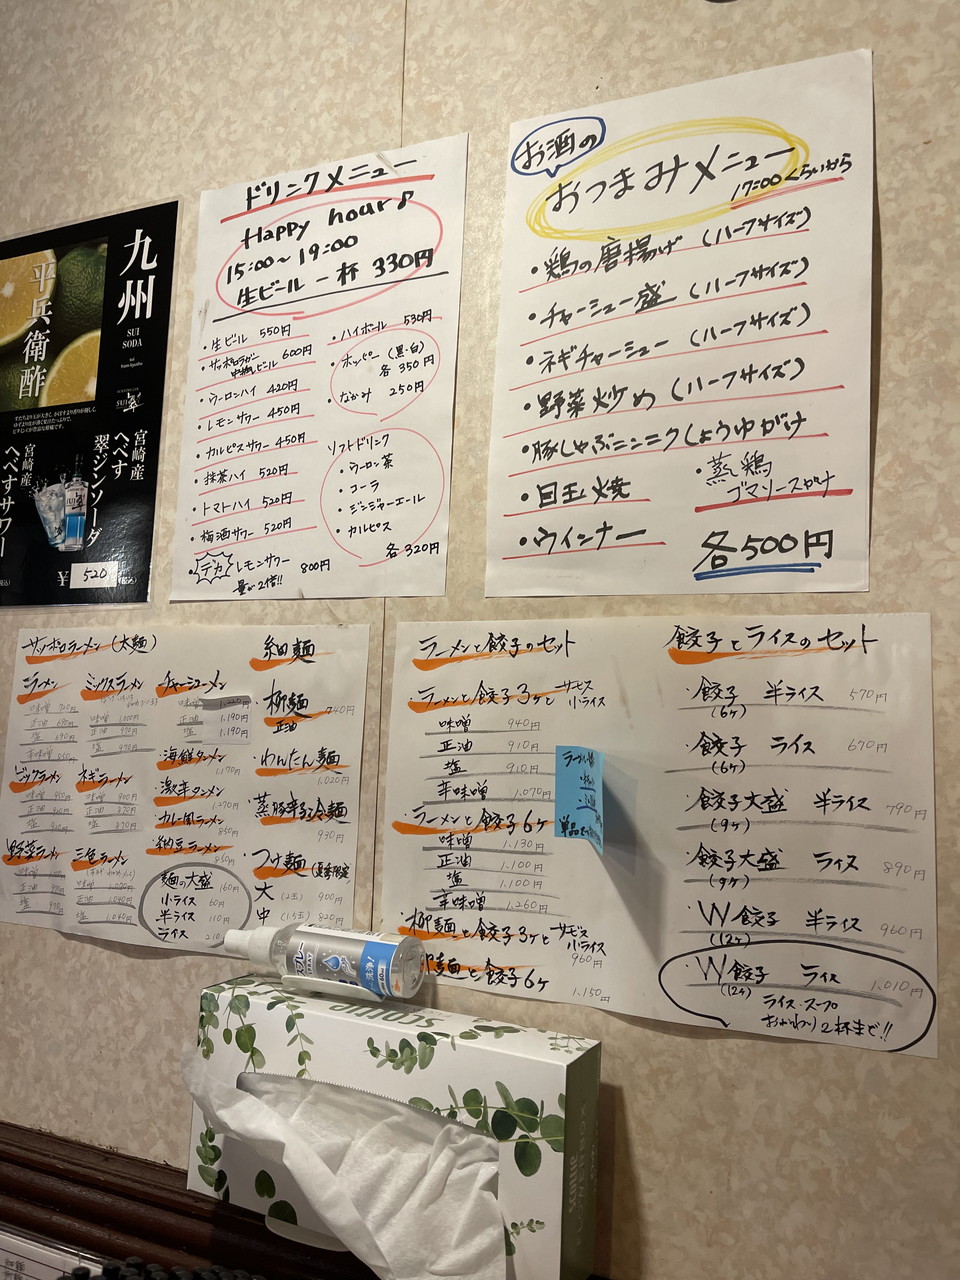 九州
SUI
SODA
平兵衛酢
宮崎産
へべす
翠ジンソーダ
宮崎産
へべすサワー
¥ 520
ドリンクメニュー
Happy hour♪
15:00〜19:00
生ビール 一杯 330円
・生ビール 550円
・サッポロラガー
中瓶ビール 600円
・ウーロンハイ 420円
・レモンサワー 450円
・カルピスサワー 450円
・抹茶ハイ 520円
・トマトハイ 520円
・梅酒サワー 520円
・デカ レモンサワー 800円
量が2倍!!
・ハイボール 530円
・ホッピー(黒・白)
各350円
・なかみ 250円
ソフトドリンク
・ウーロン茶
・コーラ
・ジンジャーエール
・カルピス
各320円
お酒の
おつまみメニュー
17:00くらいから
・鶏の唐揚げ(ハーフサイズ)
・チャーシュー盛(ハーフサイズ)
・ネギチャーシュー(ハーフサイズ)
・野菜炒め(ハーフサイズ)
・豚しゃぶニンニクしょうゆがけ
・目玉焼
・蒸し鶏
ゴマソースがけ
・ウインナー
各500円
サッポロラーメン(太麺)
ラーメン
ミックスラーメン
味噌 1,000円
チャーシューメン
味噌 1,220円
正油 1,190円
塩 1,190円
ビックラーメン
ネギラーメン
・海鮮タンメン
1,170円
・激辛タンメン
1,270円
・カレー風ラーメン
850円
・納豆ラーメン
850円
野菜ラーメン
三色ラーメン
麺の大盛 160円
小ライス 60円
半ライス 110円
ライス 210
細麺
・柳麺 740円
正油
・わんたん麺
1,020円
・蒸豚辛子冷麺
930円
・つけ麺(夏季限定)
大 (2玉) 900円
中 (1.5玉) 820円
ラーメンと餃子のセット
・ラーメンと餃子3ケとサービス小ライス
味噌 940円
正油 910円
塩 910円
辛味噌 1,070円
・ラーメンと餃子6ケ
味噌 1,130円
正油 1,100円
塩 1,100円
辛味噌 1,260円
・柳麺と餃子3ケとサービス小ライス
960円
柳麺と餃子6ケ
1,150円
餃子とライスのセット
・餃子 半ライス 570円
(6ケ)
・餃子 ライス 670円
(6ケ)
・餃子大盛 半ライス 790円
(9ケ)
・餃子大盛 ライス 890円
(9ケ)
・W餃子 半ライス 960円
(12ケ)
・W餃子 ライス 1,010円
(12ケ)
ライス・スープ
おかわり2杯まで!!
スプレー
SPRAY
洗浄!
scottie
scottie